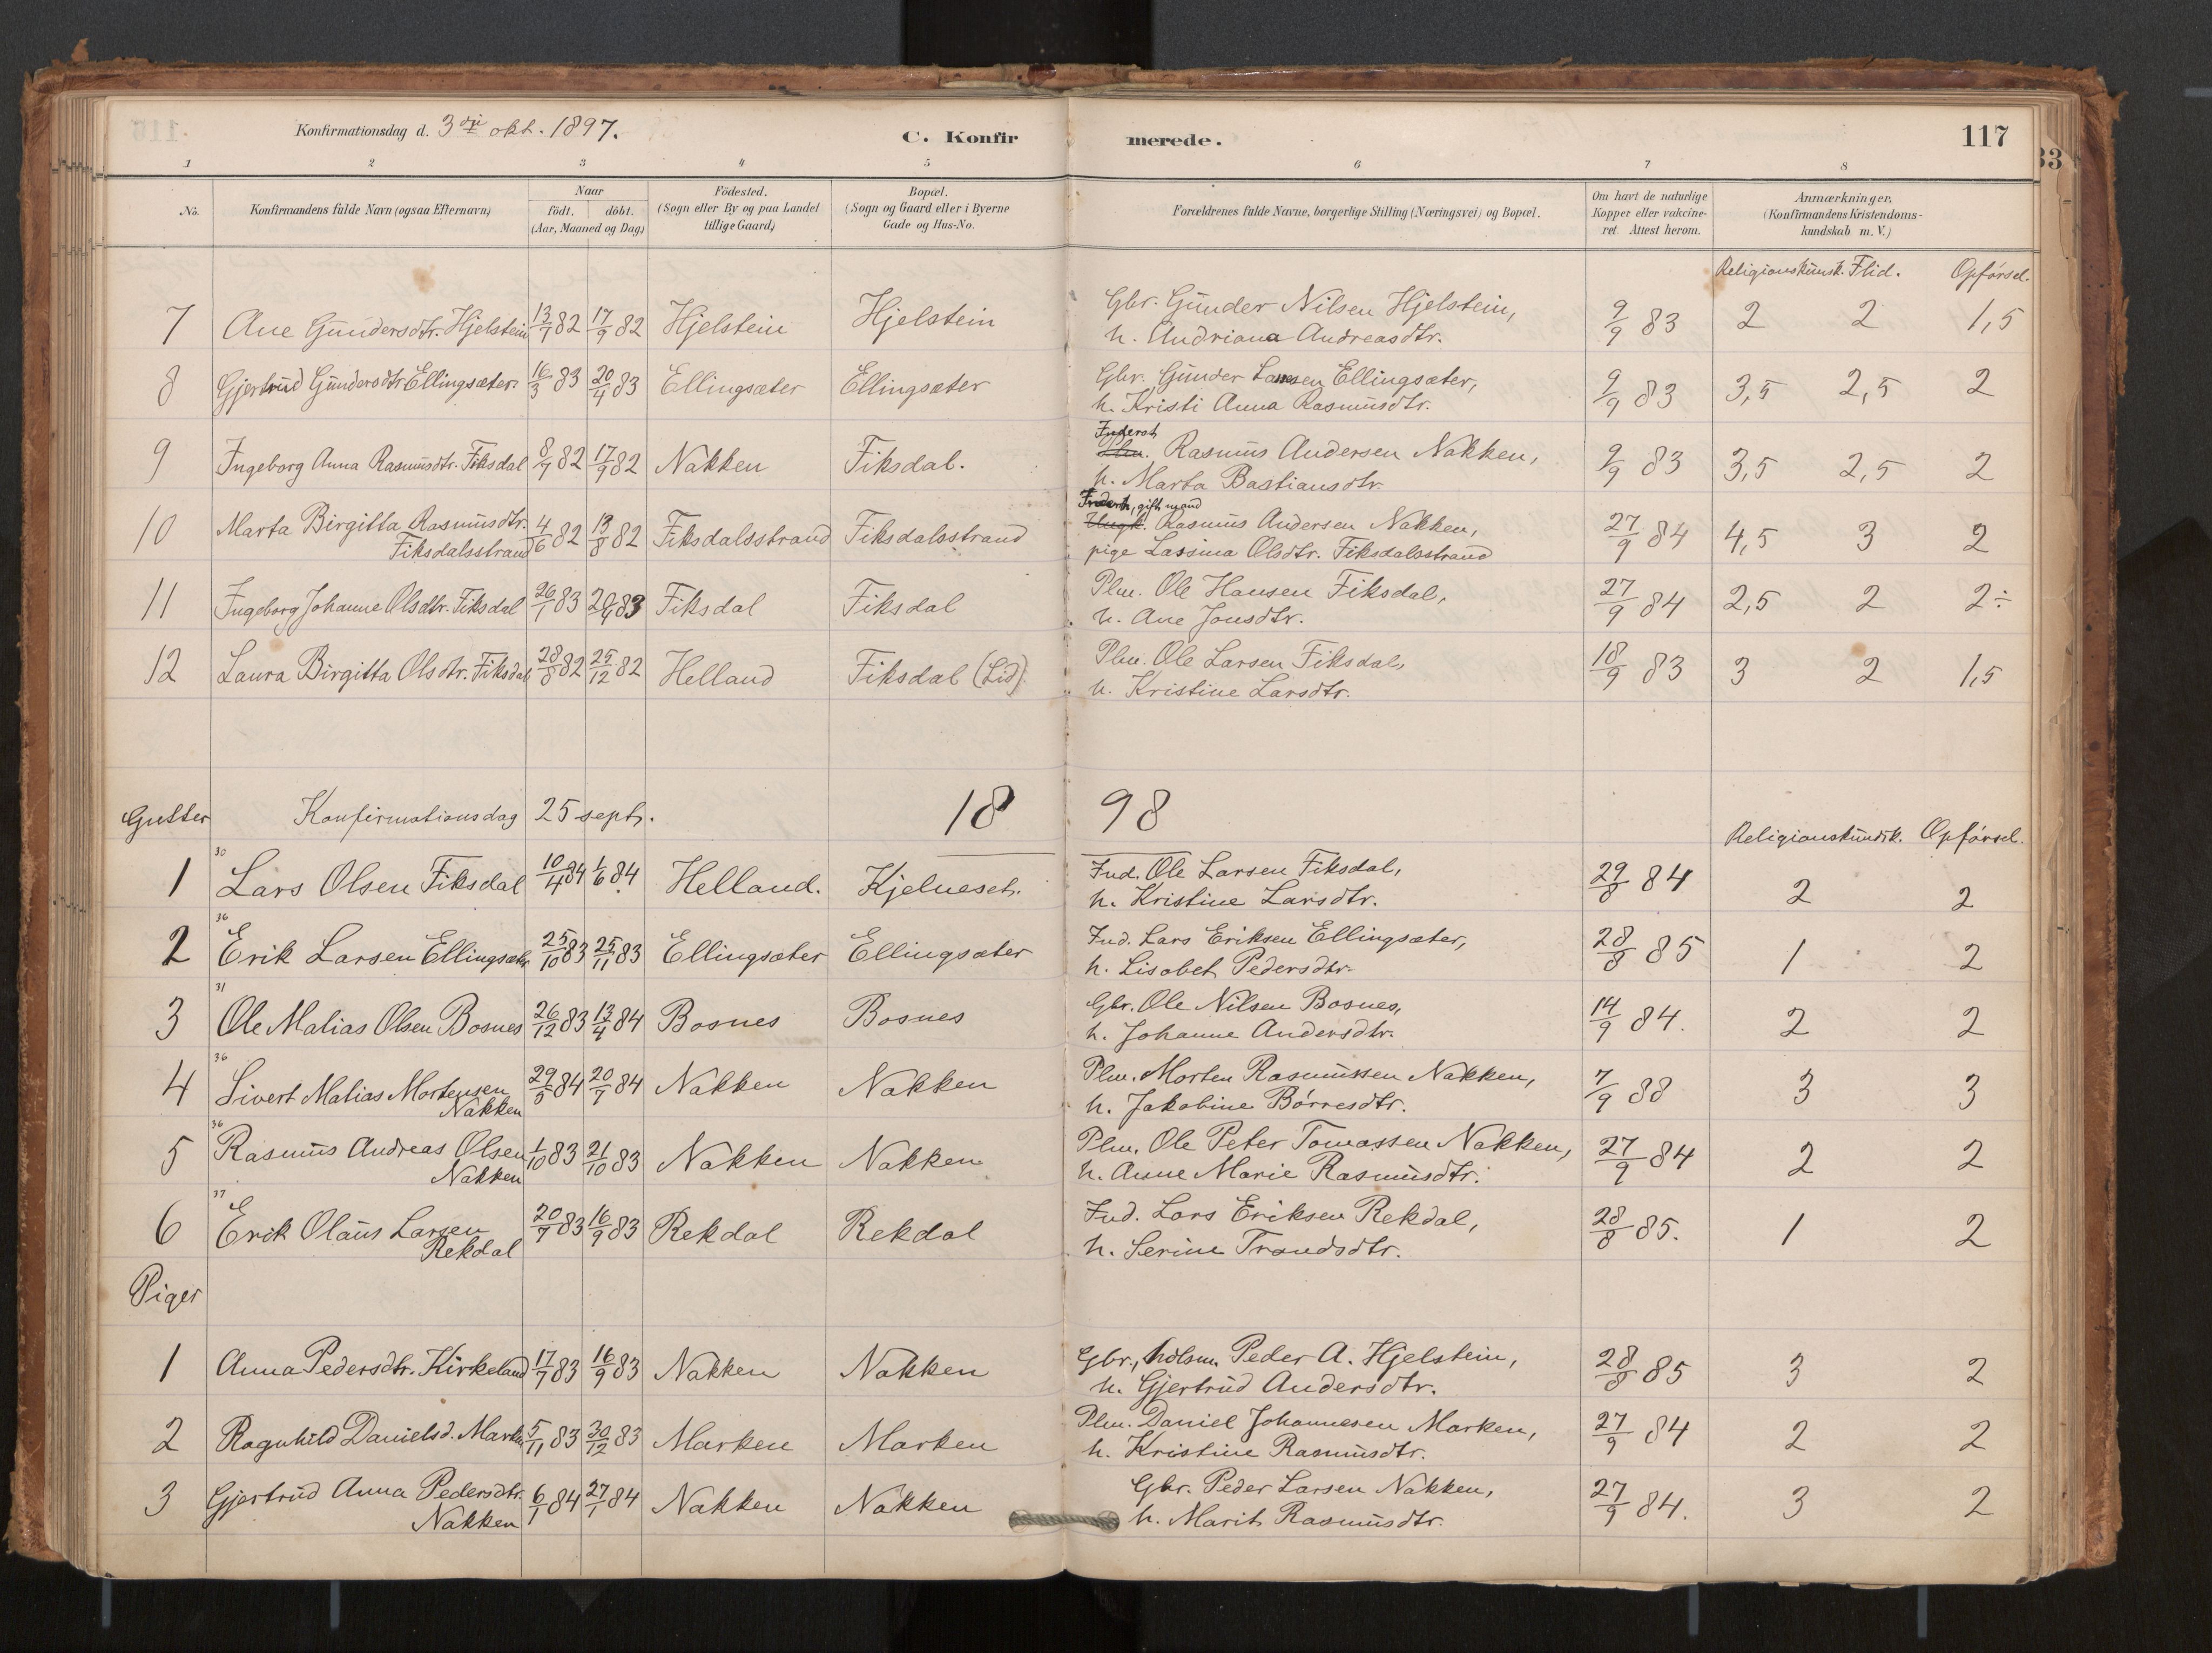 Konfirmationsdag d. 3die okt. 1897. C. Konfir merede. 117
1 2 3 4 5 6 7 8
No. Konfirmandens fulde Navn (ogsaa Efternavn) Naar födt. döbt. (Aar, Maaned og Dag) Födested. (Sogn eller By og paa Landet tillige Gaard) Bopæl. (Sogn og Gaard eller i Byerne Gade og Hus-No. Forældrenes fulde Navne, borgerlige Stilling (Næringsvei) og Bopæl. Om havt de naturlige Kopper eller vakcineret. Attest herom. Anmærkninger. (Konfirmandens Kristendomskundskab m. V.)
Religionskunsk. Flid. Opførsel.
7 Ane Gundersdtr. Hjelstein 13/7 82 17/9 82 Hjelstein Hjelstein Gbr. Gunder Nilsen Hjelstein, 9/9 83 2 2 1,5
h. Andriana Andreasdtr.
8 Gjertrud Gundersdtr Ellingsæter. 16/3 83 20/4 83 Ellingsæter Ellingsæter Gbr. Gunder Larsen Ellingsæter, 9/9 83 3,5 2,5 2
h. Kristi Anna Rasmusdtr.
Inderst
9 Ingeborg Anna Rasmusdtr. Fiksdal 8/7 82 17/9 82 Nakken Fiksdal. Plm. Rasmus Andersen Nakken, 9/9 83 3,5 2,5 2
h. Marta Bastiansdtr.
Inderst, gift mand
10 Marta Birgitta Rasmusdtr. 4/6 82 13/8 82 Fiksdalsstrand Fiksdalsstrand Ungk. Rasmus Andersen Nakken, 27/9 84 4,5 3 2
Fiksdalsstrand pige Lassina Olsdtr. Fiksdalsstrand
11 Ingeborg Johanne Olsdtr. Fiksdal 26/1 83 29/4 83 Fiksdal Fiksdal Plm. Ole Hansen Fiksdal, 27/9 84 2,5 2 2÷
h. Ane Jonsdtr.
12 Laura Birgitta Olsdtr. Fiksdal 28/8 82 25/12 82 Helland Fiksdal (Lid). Plm. Ole Larsen Fiksdal, 18/9 83 3 2 1,5
h. Kristine Larsdtr.
Gutter Konfirmationsdag 25 sept. 18 98
Religionskundsk. Opførsel.
30
1 Lars Olsen Fiksdal 10/4 84 1/6 84 Helland. Kjelneset. Ind. Ole Larsen Fiksdal, 29/8 84 2 2
h. Kristine Larsdtr.
36
2 Erik Larsen Ellingsæter 25/10 83 25/11 83 Ellingsæter Ellingsæter Ind. Lars Eriksen Ellingsæter, 28/8 85 1 2
h. Lisabet Pedersdtr.
31
3 Ole Matias Olsen Bosnes 26/12 83 13/4 84 Bosnes Bosnes Gbr. Ole Nilsen Bosnes, 14/9 84. 2 2
h. Johanne Andersdtr.
36
4 Sivert Matias Mortensen 29/5 84 20/7 84 Nakken Nakken Plm. Morten Rasmussen Nakken, 7/9 88 3 3
Nakken h. Jakobine Børresdtr.
36
5 Rasmus Andreas Olsen 1/10 83 21/10 83 Nakken Nakken Plm. Ole Peter Tomassen Nakken, 27/9 84 2 2
Nakken h. Anne Marie Rasmusdtr.
37
6 Erik Olaus Larsen 20/7 83 16/9 83 Rekdal Rekdal Ind. Lars Eriksen Rekdal, 28/8 85. 1 2
Rekdal h. Serine Trondsdtr.
Piger
1 Anna Pedersdtr. Kirkeland 17/7 83 16/9 83 Nakken Nakken Gbr., holsm. Peder A. Hjelstein, 28/8 85 3 2
h. Gjertrud Andersdtr.
2 Ragnhild Danielsd. Marken 5/11 83 30/12 83 Marken Marken Plm. Daniel Johannesen Marken, 27/9 84 2 2
h. Kristine Rasmusdtr.
3 Gjertrud Anna Pedersdtr. 6/1 84 27/1 84 Nakken Nakken Gbr. Peder Larsen Nakken, 27/9 84. 3 2
Nakken h. Marit Rasmusdtr.